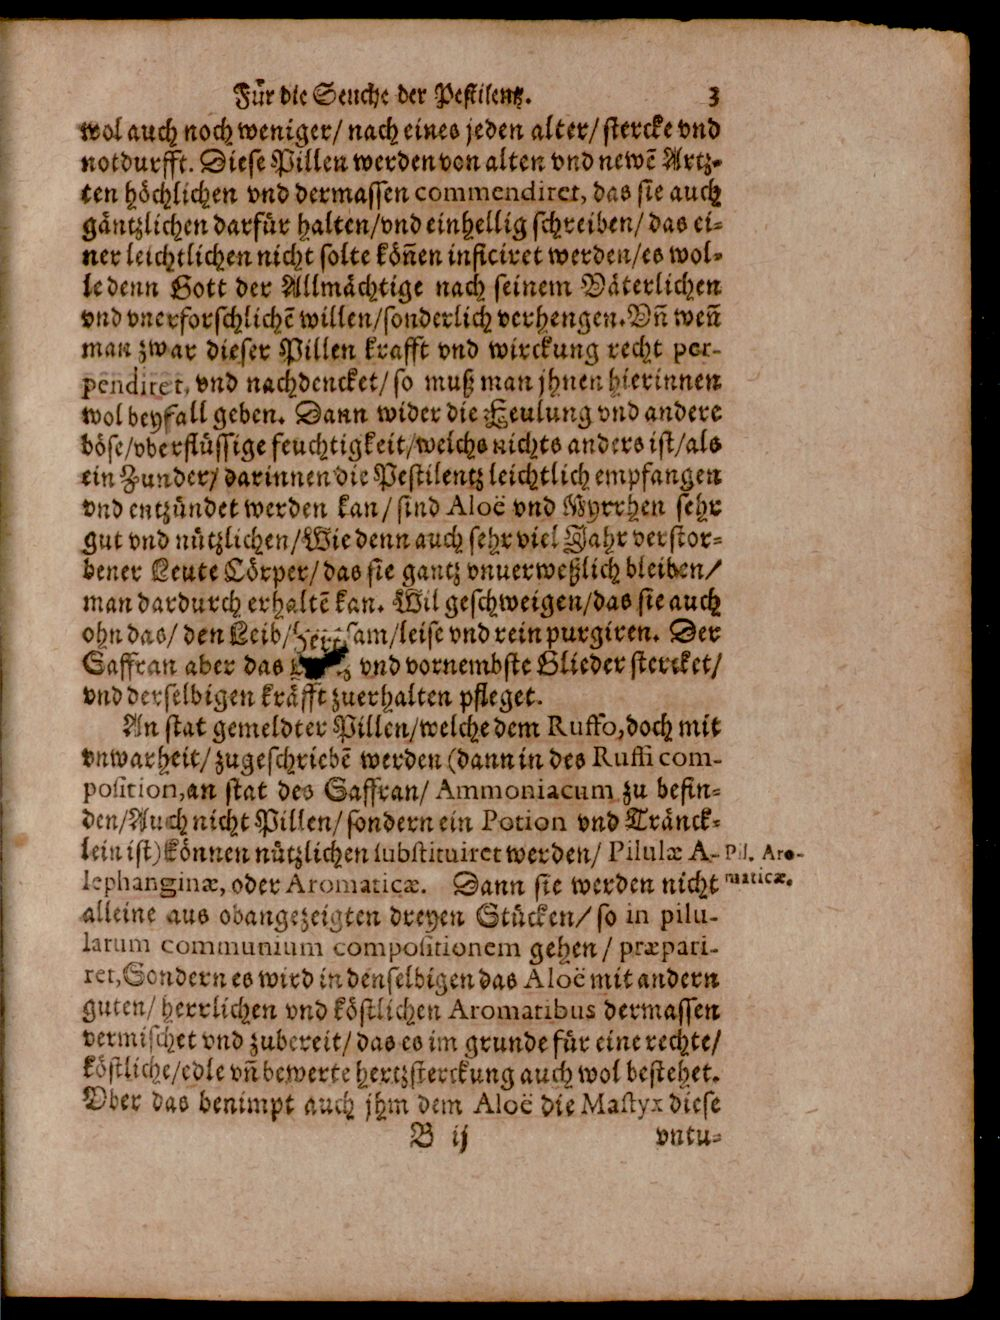 Für die Seuche der Pestilentz. 3
wol auch noch weniger/ nach eines jeden alter/ stercke vnd
notdurfft. Diese Pillen werden von alten vnd newē Artz-
ten höchlichen vnd dermassen commendiret, das sie auch
gäntzlichen darfür halten/vnd einhellig schreiben/ das ei-
ner leichtlichen nicht solte köñen inficiret werden/es wol-
le denn Gott der Allmächtige nach seinem Väterlichen
vnd vnerforschlichē willen/sonderlich verhengen. Vñ weñ
man zwar dieser Pillen krafft vnd wirckung recht per-
pendiret, vnd nachdencket/ so muß man jhnen hierinnen
wol beyfall geben. Dann wider die Feulung vnd andere
böse/vberflüssige feuchtigkeit/welchs nichts anders ist/als
ein Zunder/ darinnen die Pestilentz leichtlich empfangen
vnd entzündet werden kan/ sind Aloë vnd Myrrhen sehr
gut vnd nützlichen/Wie denn auch sehr viel Jahr verstor-
bener Leute Cörper/ das sie gantz vnuerweßlich bleiben/
man dardurch erhaltē kan. Wil geschweigen/das sie auch
ohn das/ den Leib/ sam/leise vnd rein purgiren. Der
Saffran aber das vnd vornembste Glieder stercket/
vnd derselbigen kräfft zuerhalten pfleget.
An stat gemeldter Pillen/welche dem Ruffo, doch mit
vnwarheit/ zugeschriebē werden (dann in des Ruffi com-
position, an stat des Saffran/ Ammoniacum zu befin-
den/Auch nicht Pillen/ sondern ein Potion vnd Tränck-
lein ist) können nützlichen substituiret werden/ Pilulæ A-
lephanginæ, oder Aromaticæ. Dann sie werden nicht
Pil. Aro-
maticæ.
alleine aus obangezeigten dreyen Stücken/ so in pilu-
larum communium compositionem gehen/ præpari-
ret, Sondern es wird in denselbigen das Aloë mit andern
guten/ herrlichen vnd köstlichen Aromatibus dermassen
vermischet vnd zubereit/ das es im grunde für eine rechte/
köstliche/edle vñ bewerte hertzsterckung auch wol bestehet.
Vber das benimpt auch jhm dem Aloë die Mastyx diese
B ij vntu-